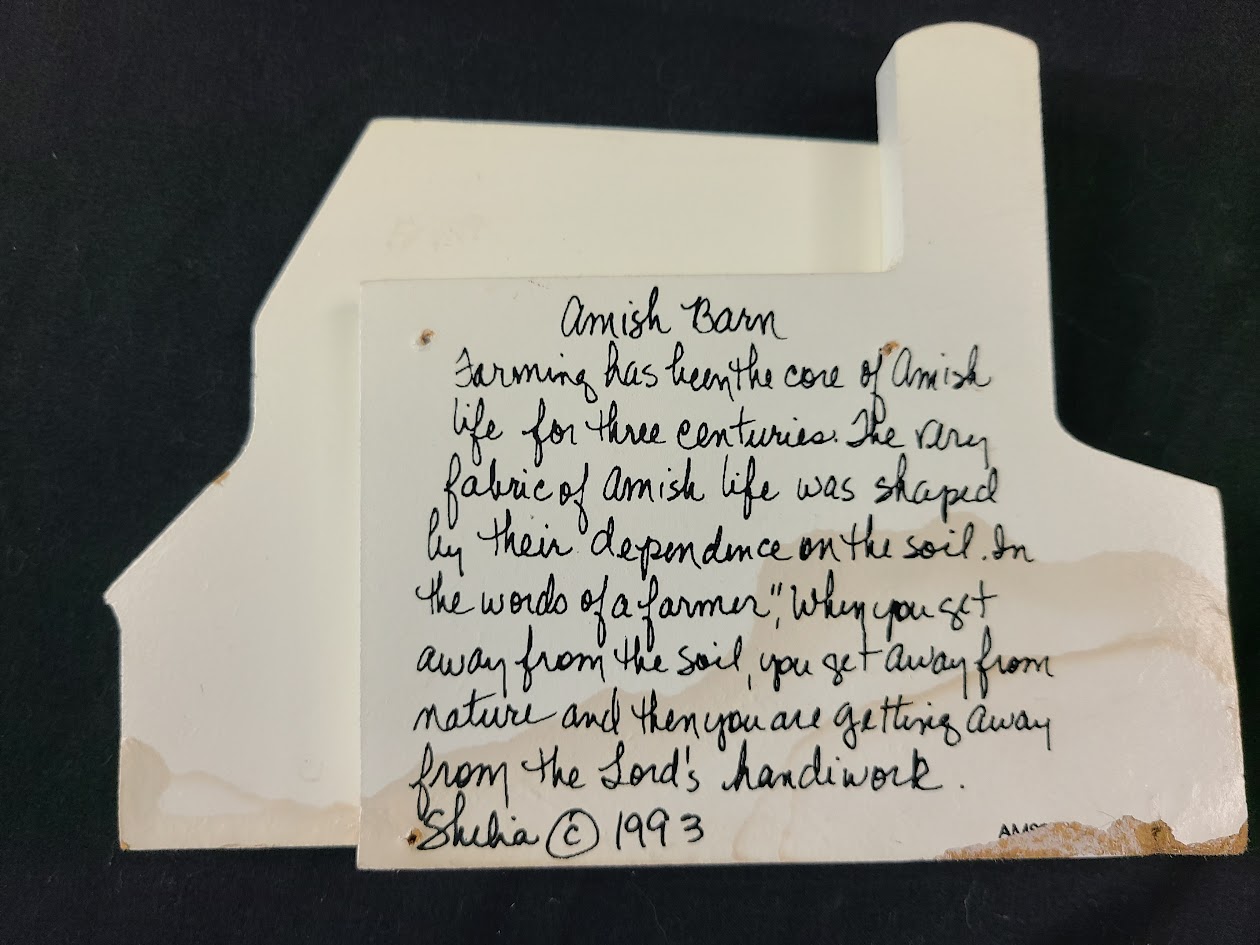 Amish Barn
Farming has been the core of Amish
life for three centuries. The very
fabric of Amish life was shaped
by their dependence on the soil. In
the words of a farmer", When you get
away from the soil, you get away from
nature and then you are getting away
from the Lord's handiwork.
Shelia © 1993